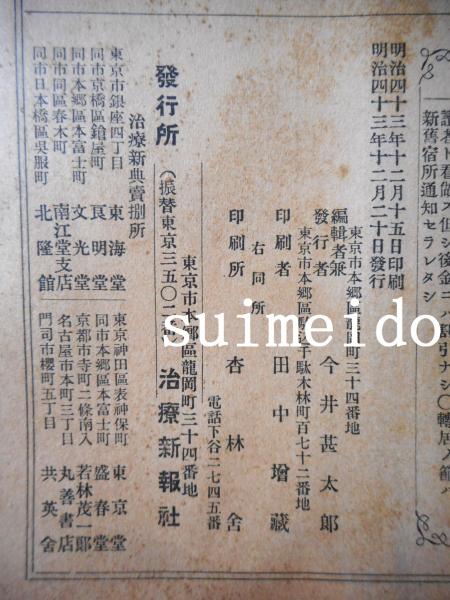 讀者ト看做ス但シ後金ニハ割引ナシ〇轉居ノ節ハ
新舊宿所通知セラレタシ
明治四十三年十二月十五日印刷
明治四十三年十二月二十日發行
東京市本郷區龍岡町三十四番地
編輯者兼
發行者 今井甚太郎
東京市本郷區駒込千駄木林町百七十二番地
印刷者 田中增藏
右同所
印刷所 杏林舍
東京市本郷區龍岡町三十四番地
電話下谷二七四五番
發行所 治療新報社
(振替東京三五〇二
治療新典賣捌所
東京市銀座四丁目 東海堂
同市京橋區鎗屋町 良明堂
同市本郷區本富士町 文光堂
同市同區春木町 南江堂支店
同市日本橋區吳服町 北隆館
東京神田區表神保町 東京堂
同市本郷區本富士町 盛春堂
京都市寺町二條南入 若林茂一郎
名古屋市本町三丁目 丸善書店
門司市櫻町五丁目 共英舍
suimeido